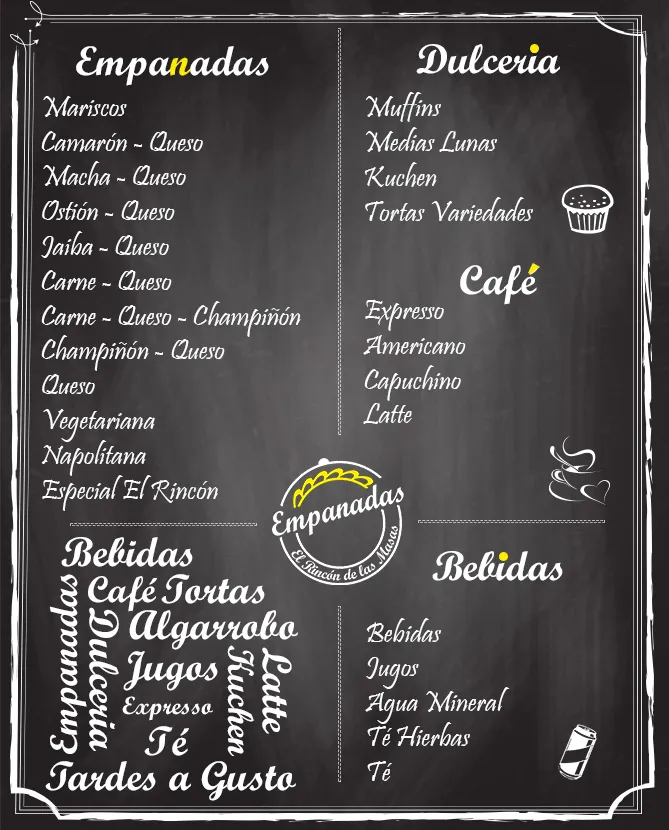 Empanadas
Mariscos
Camarón ~ Queso
Macha ~ Queso
Ostión ~ Queso
Jaiba ~ Queso
Carne ~ Queso
Carne ~ Queso ~ Champiñón
Champiñón ~ Queso
Queso
Vegetariana
Napolitana
Especial El Rincón
Dulceria
Muffins
Medias Lunas
Kuchen
Tortas Variedades
Café
Expresso
Americano
Capuchino
Latte
Empanadas
El Rincón de las Masas
Bebidas
Café Tortas
Empanadas
Dulceria
Algarrobo
Jugos
Kuchen
Latte
Expresso
Té
Tardes a Gusto
Bebidas
Bebidas
Jugos
Agua Mineral
Té Hierbas
Té